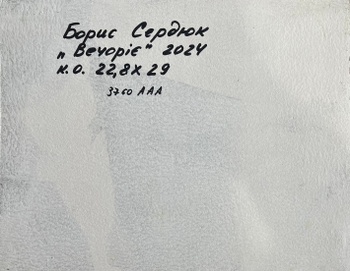 Борис Сердюк
„Вечоріє" 2024
к.о. 22,8 х 29
3760 ААА